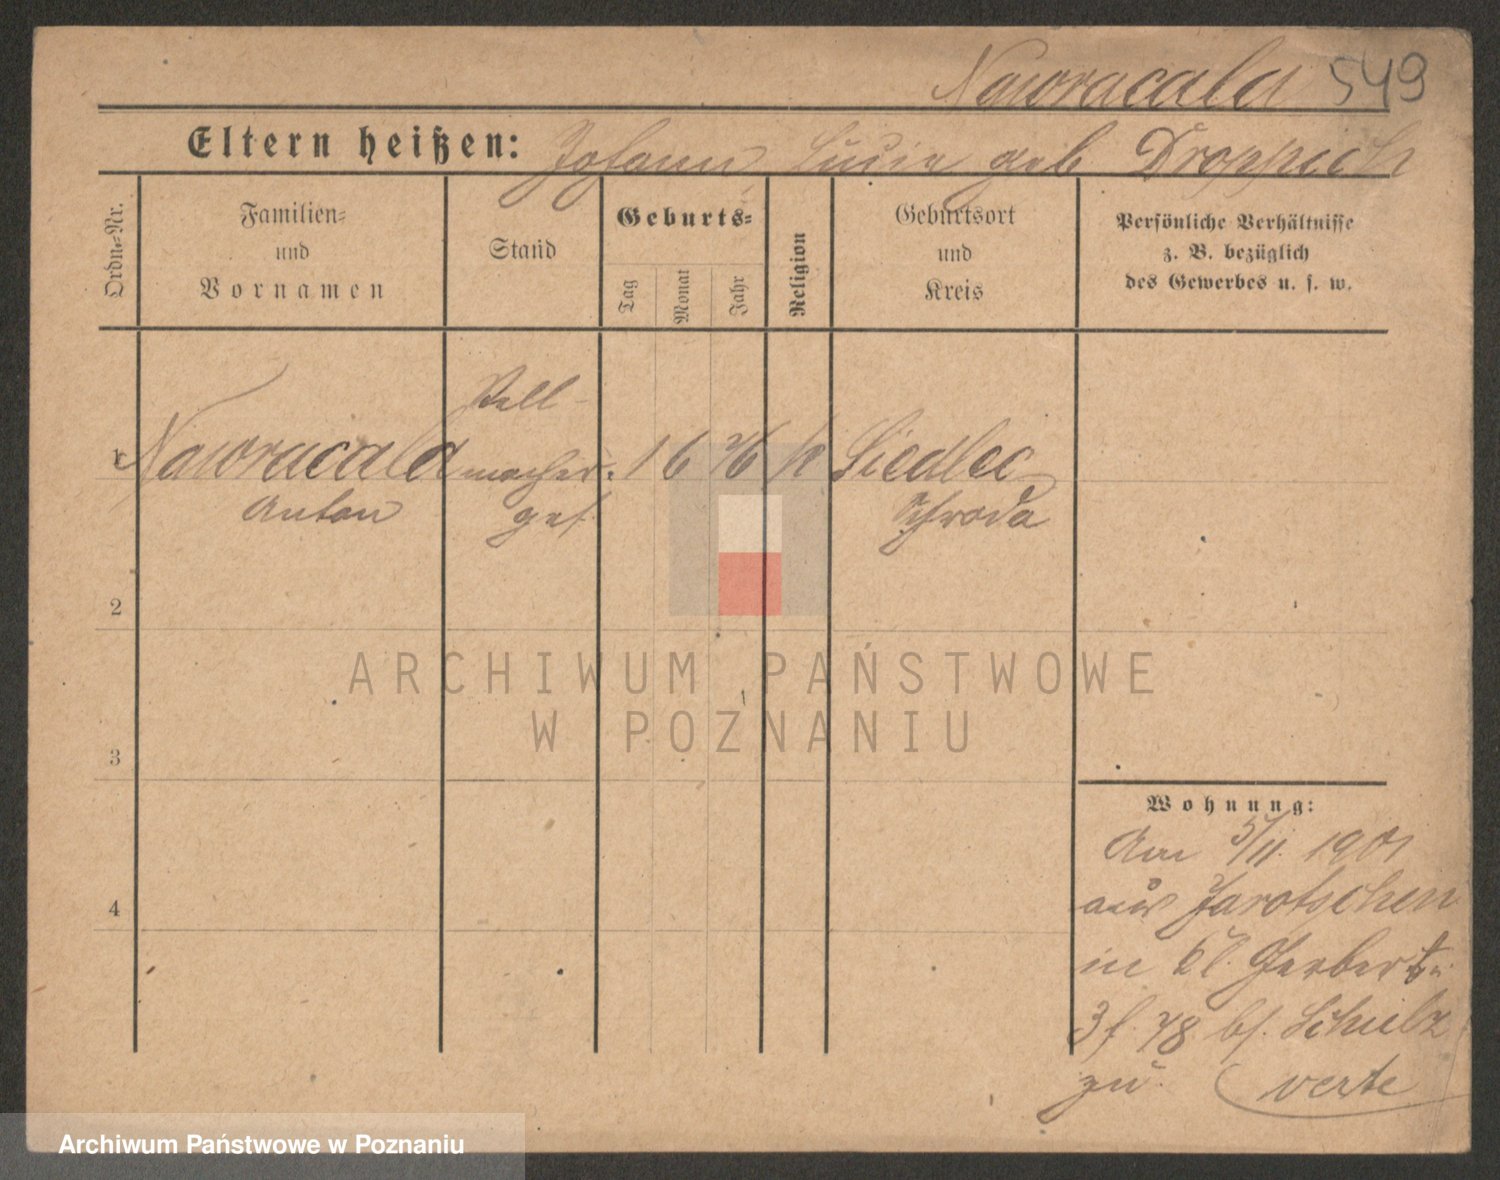 Nawracala 549
Eltern heißen: Johann Lucie geb Droppich
Ordn.-Nr.
Familien-
und
Vornamen
Stand
Geburts-
Tag
Monat
Jahr
Religion
Geburtsort
und
Kreis
Persönliche Verhältnisse
z. B. bezüglich
des Gewerbes u. s. w.
1 Nawracala
Anton
Stell-
macher-
ges.
1 6 76 k
Siedlec
Schroda
2
3
4
ARCHIWUM PAŃSTWOWE
W POZNANIU
Wohnung:
Am 5/11. 1901
aus Jarotschin
in kl. Gerberstr.
78 bei Schulz
zu. verte
Archiwum Państwowe w Poznaniu